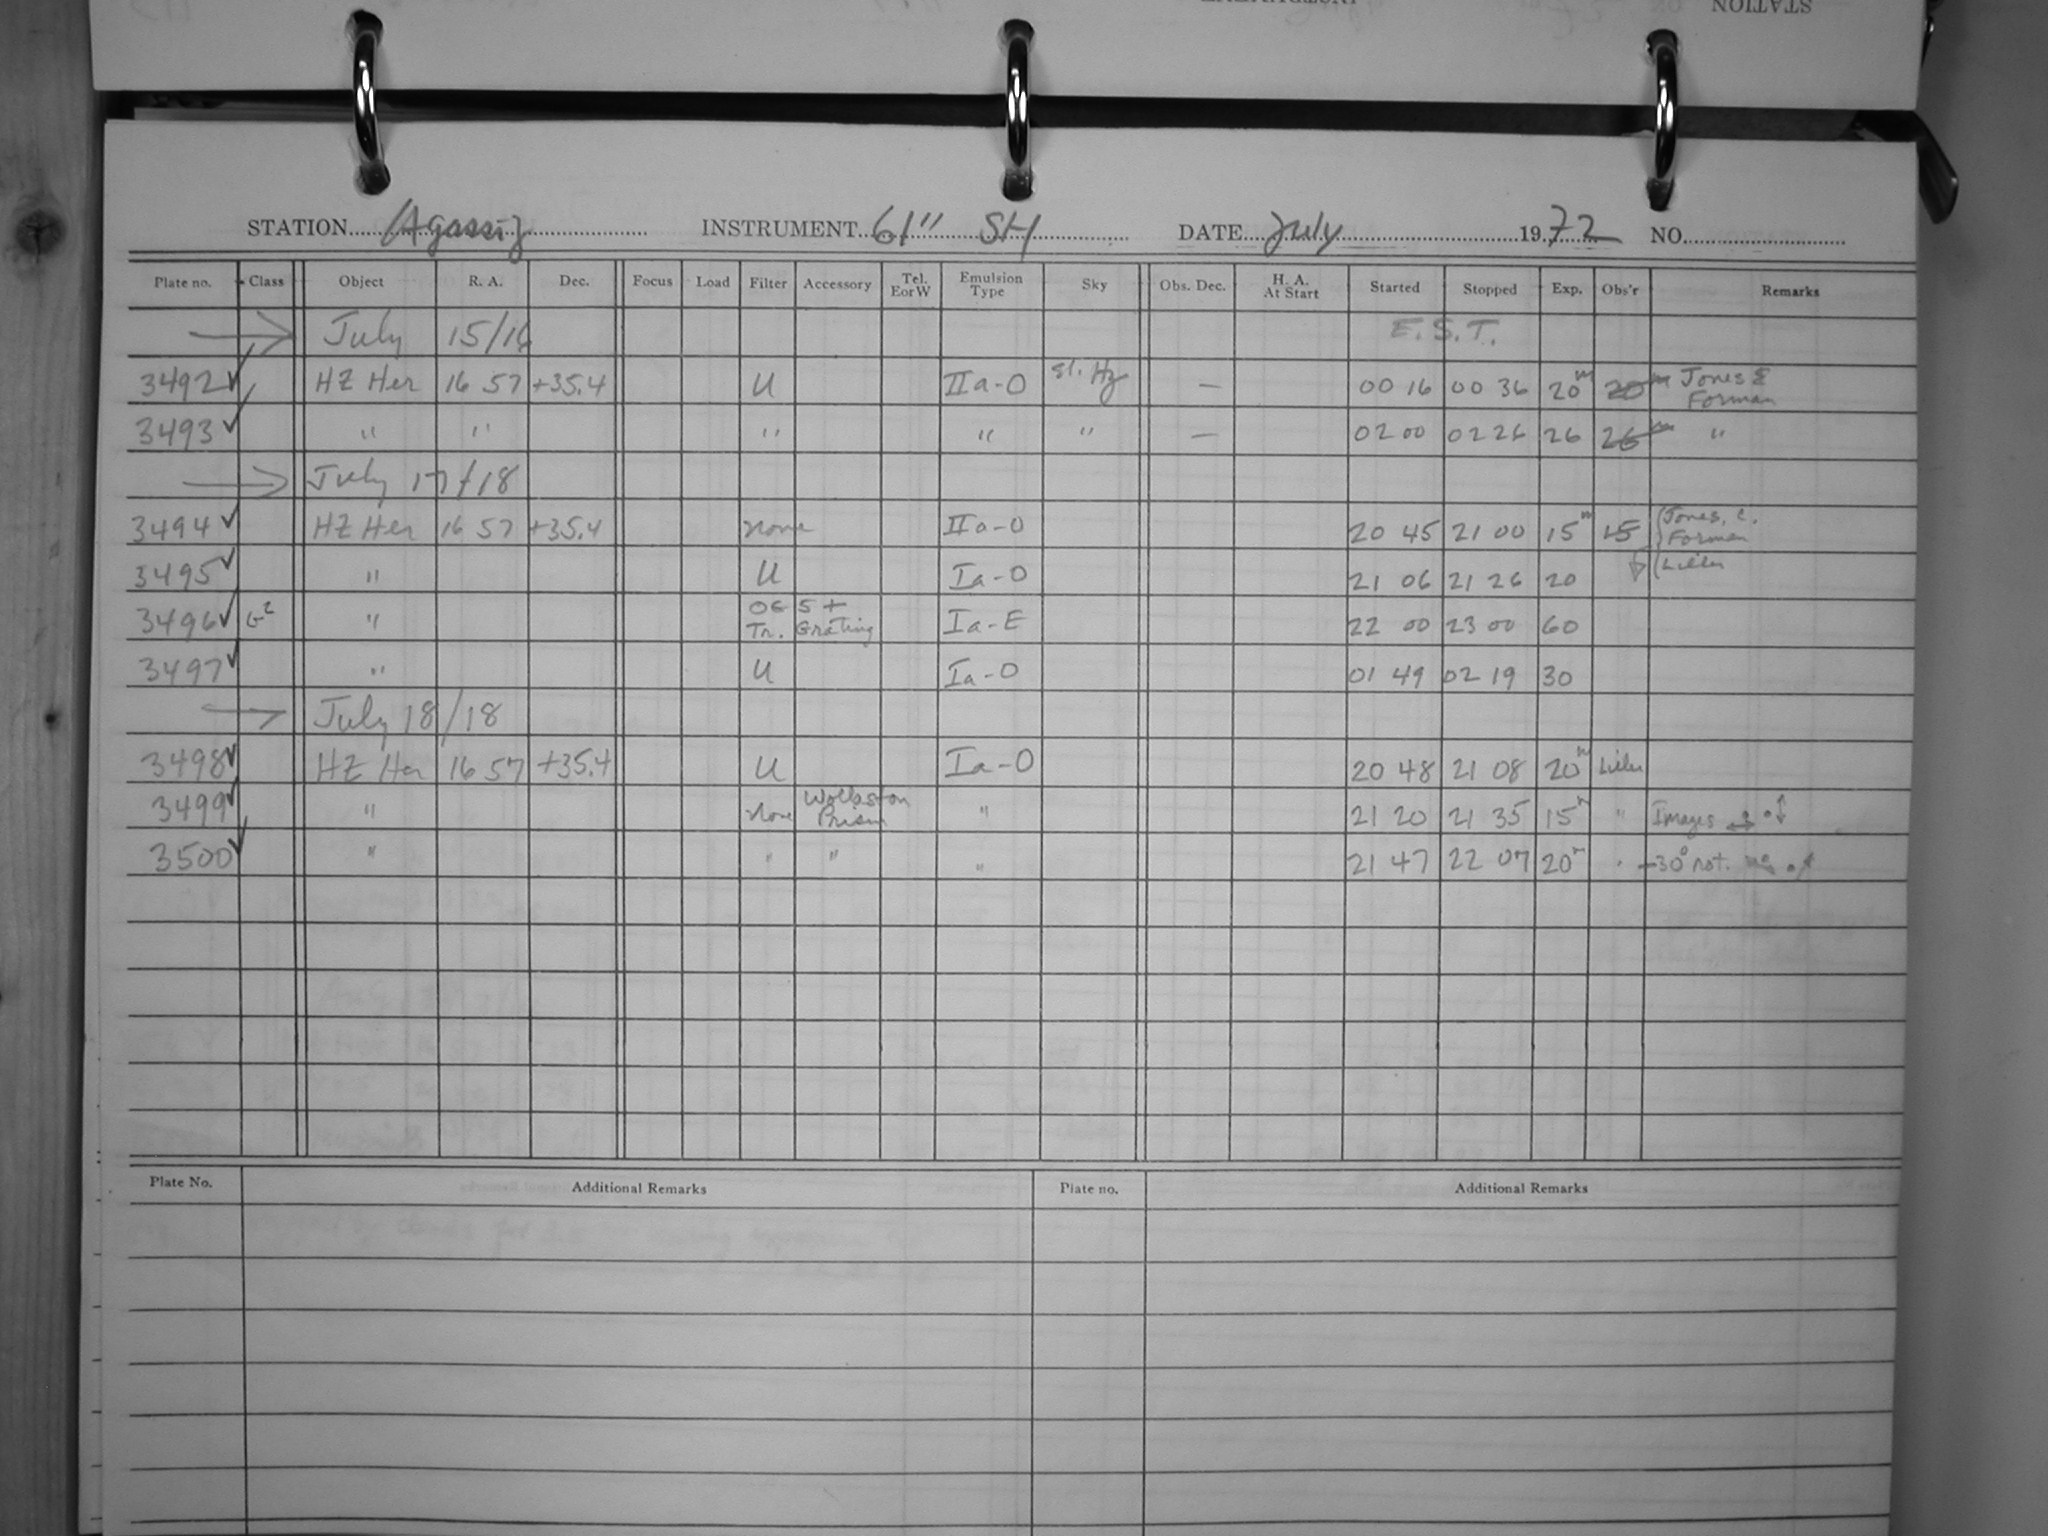 STATION
STATION Agassiz INSTRUMENT 61" SH DATE July 1972 NO.
Plate no. Class Object R. A. Dec. Focus Load Filter Accessory Tel. E or W Emulsion Type Sky Obs. Dec. H. A. At Start Started Stopped Exp. Obs'r Remarks
→ July 15/16 E.S.T.
3492 ✓ HZ Her 16 57 +35.4 U IIa-O Sl. Hz — 00 16 00 36 20m 20m Jones & Forman
3493 ✓ " " " " " — 02 00 02 26 26 26m "
→ July 17/18
3494 ✓ HZ Her 16 57 +35.4 none IIa-O 20 45 21 00 15m 15 Jones, C. Forman
3495 ✓ " U Ia-O 21 06 21 26 20 Liller
3496 ✓ G2 " OG 5 + Tr. Grating Ia-E 22 00 23 00 60
3497 ✓ " U Ia-O 01 49 02 19 30
→ July 18/18
3498 ✓ HZ Her 16 57 +35.4 U Ia-O 20 48 21 08 20m Liller
3499 ✓ " None Wollaston Prism " 21 20 21 35 15m " Images
3500 ✓ " " " " 21 47 22 07 20m " +30° rot.
Plate No. Additional Remarks Plate no. Additional Remarks